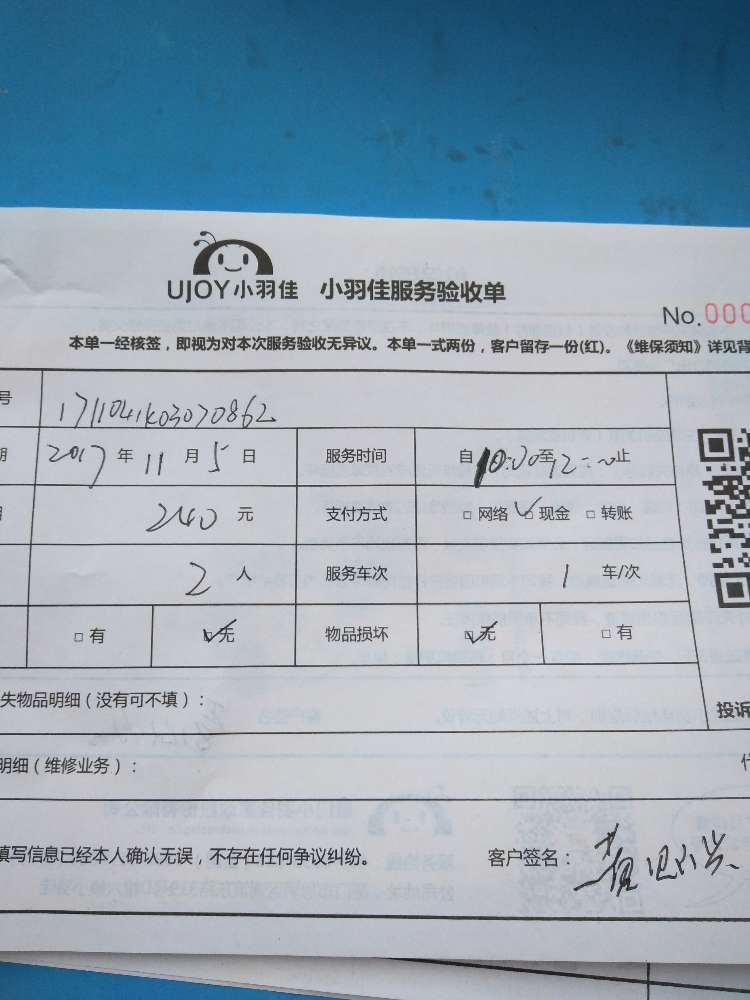 UJOY小羽佳 小羽佳服务验收单
No.000
本单一经核签，即视为对本次服务验收无异议。本单一式两份，客户留存一份(红)。《维保须知》详见背
号 1711041K03070862
期 2017 年 11 月 5 日 服务时间 自 10:00 至 12:00 止
240 元 支付方式 □ 网络 ☑ 现金 □ 转账
2 人 服务车次 1 车/次
□ 有 ☑ 无 物品损坏 ☑ 无 □ 有
失物品明细（没有可不填）：
投诉
明细（维修业务）：
填写信息已经本人确认无误，不存在任何争议纠纷。 客户签名：